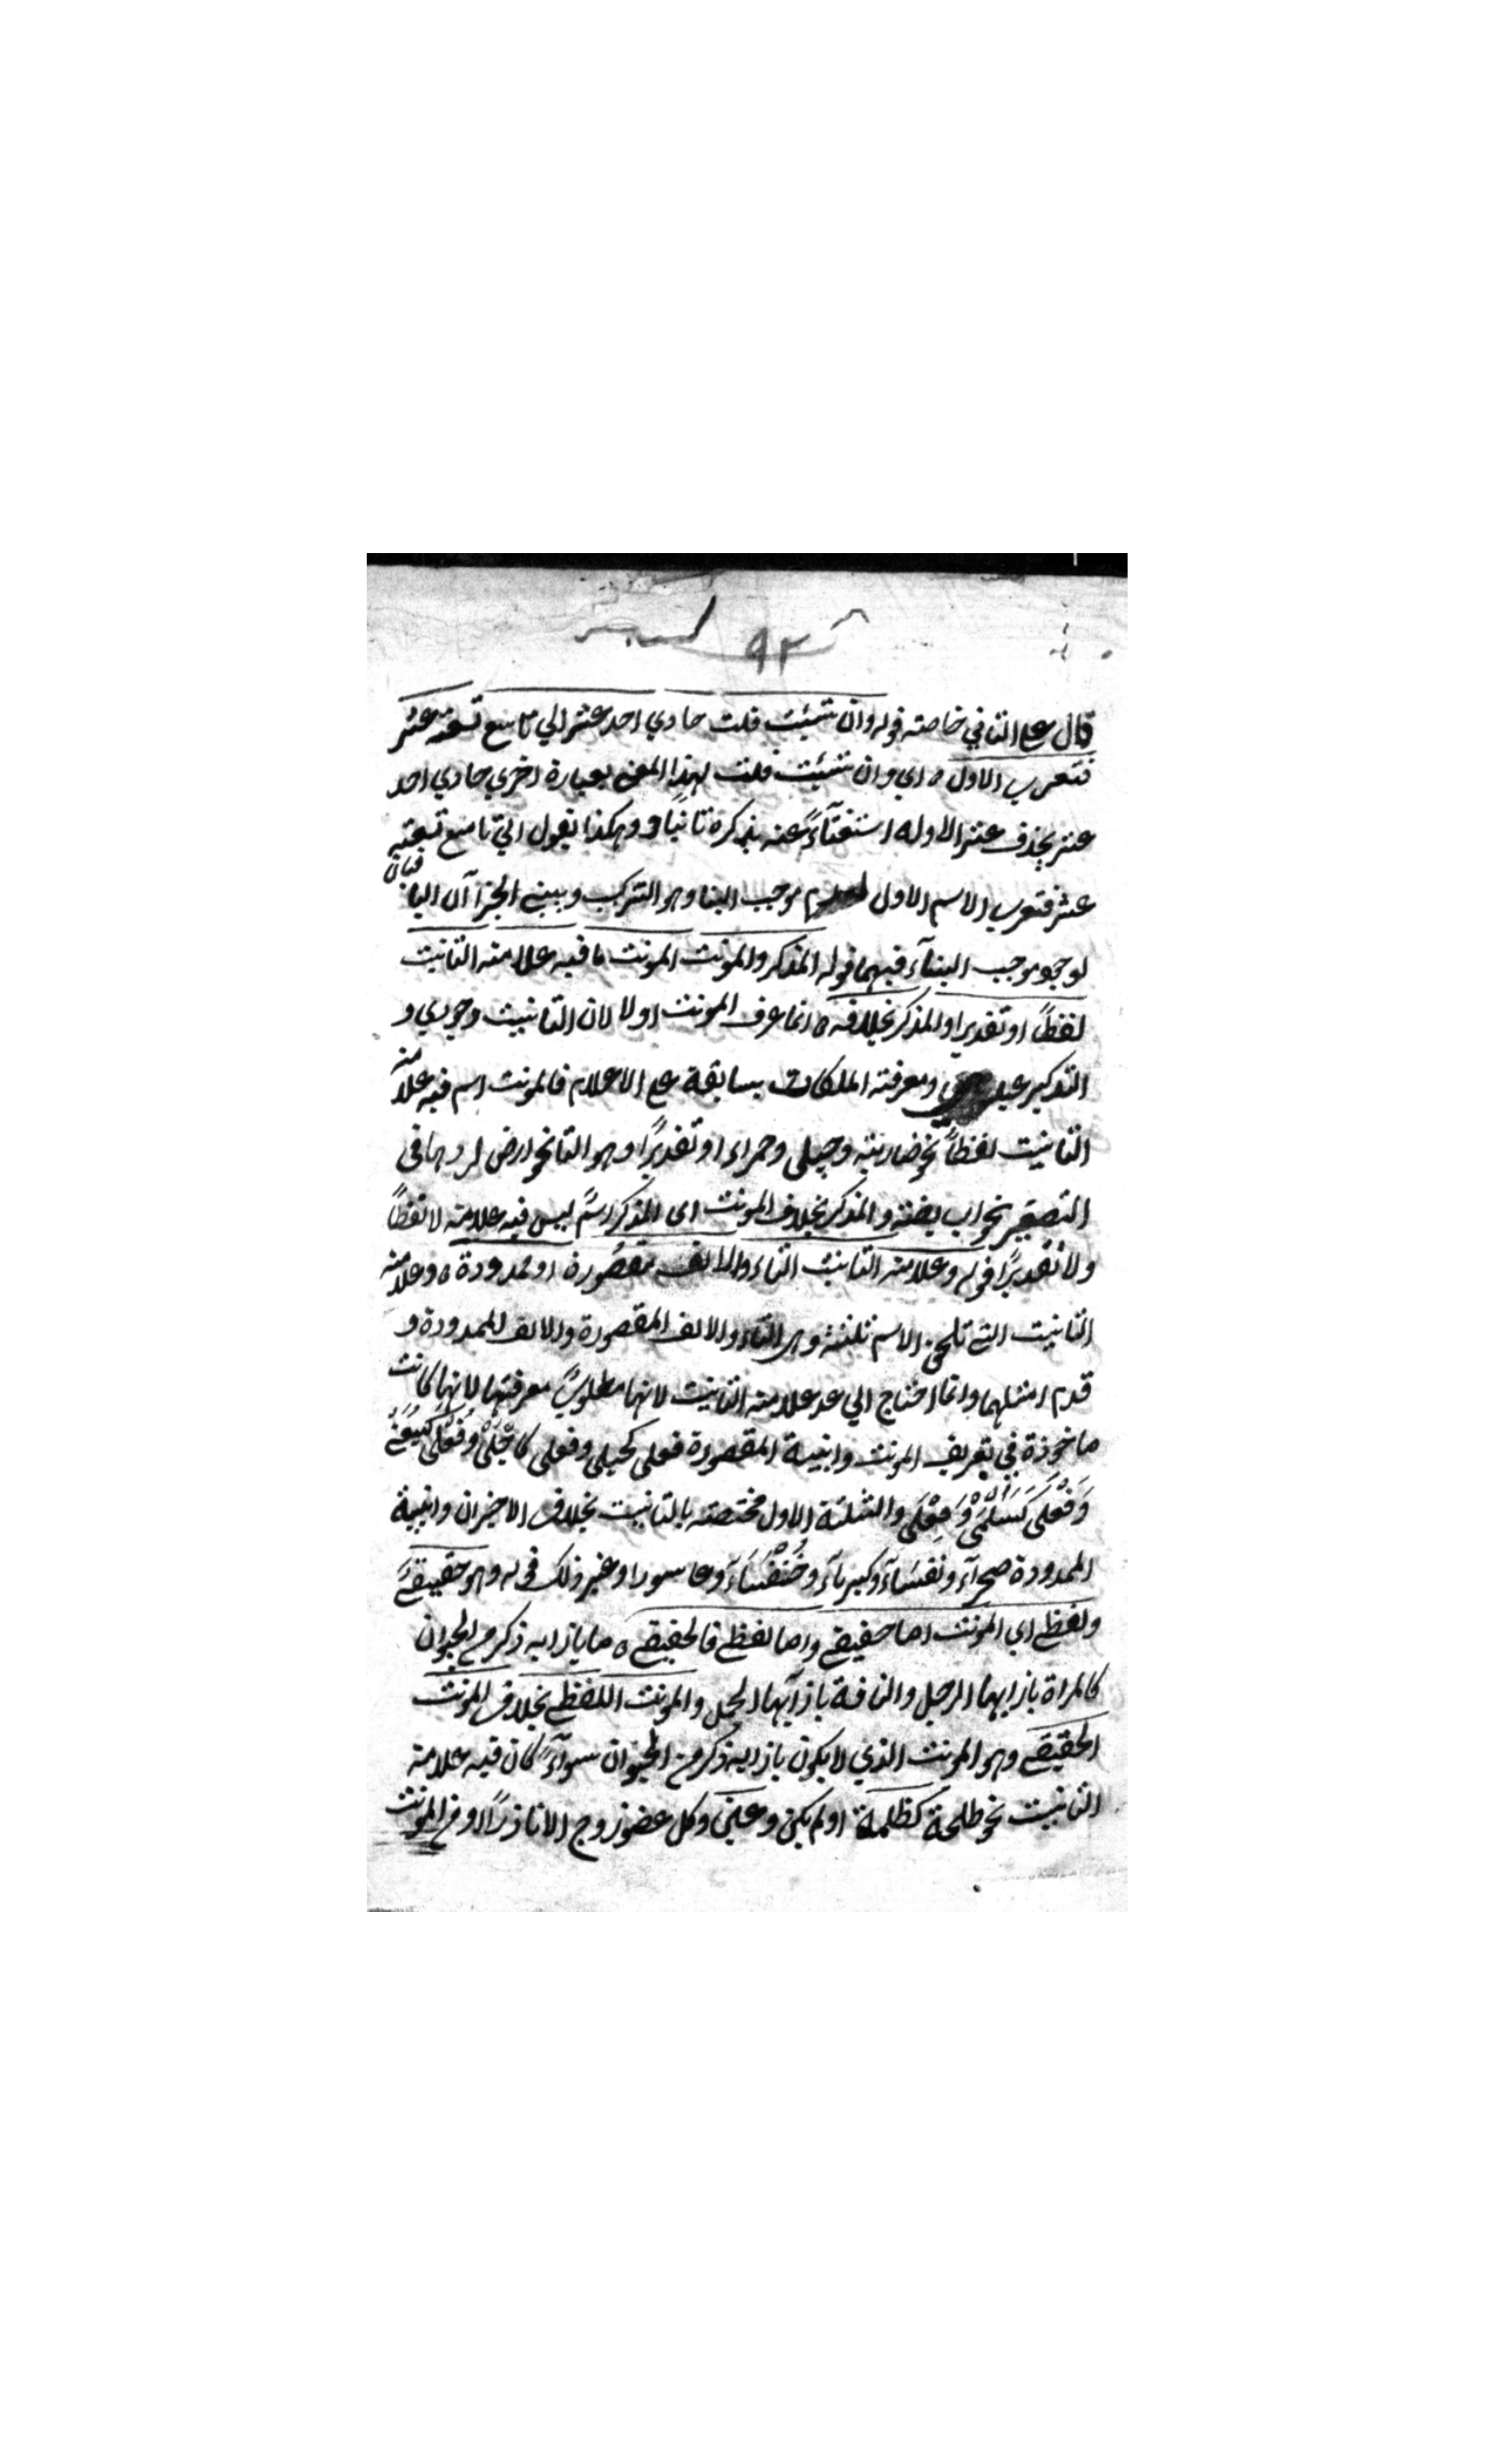 ٩٢
قال علي الثاني خاصته قوله وان شئت قلت حادي احد عشر الي تاسع تسعة عشر
فتعرب الاول ه اي وان شئت قلت لهذا المعني بعبارة اخري حادي احد
عشر بحذف عشر الاوله استغنآءً عنه بذكره ثانيًا وهكذا تقول الي تاسع تسعته
عشر فتعرب الاسم الاول موجب البنا وهو التركيب ويبني الجزآن الباقيان
لوجو موجب البنآء فيهما قوله المذكر والمونث المونث ما فيه علامته التانيث
لفظًا او تقديرا والمذكر بخلافه ه انما عرف المونث اولا لان التانيث وجودي و
التذكير ومعرفته الملكات سابقة علي الاعلام فالمونث اسم فيه علامته
التانيث لفظًا نحو ضاربته وحبلي وحمراء او تقديرًا وهو التا نحو ارض لردها في
التصغير نحو اريضته والمذكر بخلاف المونث اي المذكر اسمً ليس فيه علامته لا لفظًا
ولا تقديرًا قوله وعلامته التانيث التاء والالف مقصورة او ممدودة ه وعلامته
التانيث التي تلحق الاسم ثلثة وهي التاء والالف المقصورة والالف الممدودة و
قدم امثلهما وانما احتاج الي عد علامته التانيث لانها مطلوبً معرفتها لانها كانت
ماخوذة في تعريف المونث وابنية المقصورة فعلي كحبلي وفعلي كاجلي وفعلي
وَفَعْلَي كَسَلْمَي وَفِعْلَي والثلثة الاول مختصته بالتانيث بخلاف الاخيران وابنية
الممدودة صحرآء ونفسآء وكبريآء وخنفسَاءَ وعاسورا وغير ذلك قوله وهو حقيقيَ
ولفظي اي المونث اما حقيقي واما لفظي فالحقيقي ه ما بازايه ذكر من الحيوان
كالمراة بازايهما الرجل والناقة بازآيها الجمل والمونث اللفظي بخلاف المونث
الحقيقي وهو المونث الذي لا يكون بازايه ذكر من الحيوان سوآءً كان فيه علامته
التانيث نحو طلحة كظلمة او لم يكن وعين وكل عضو زوج الا نادرًا ومن المونث